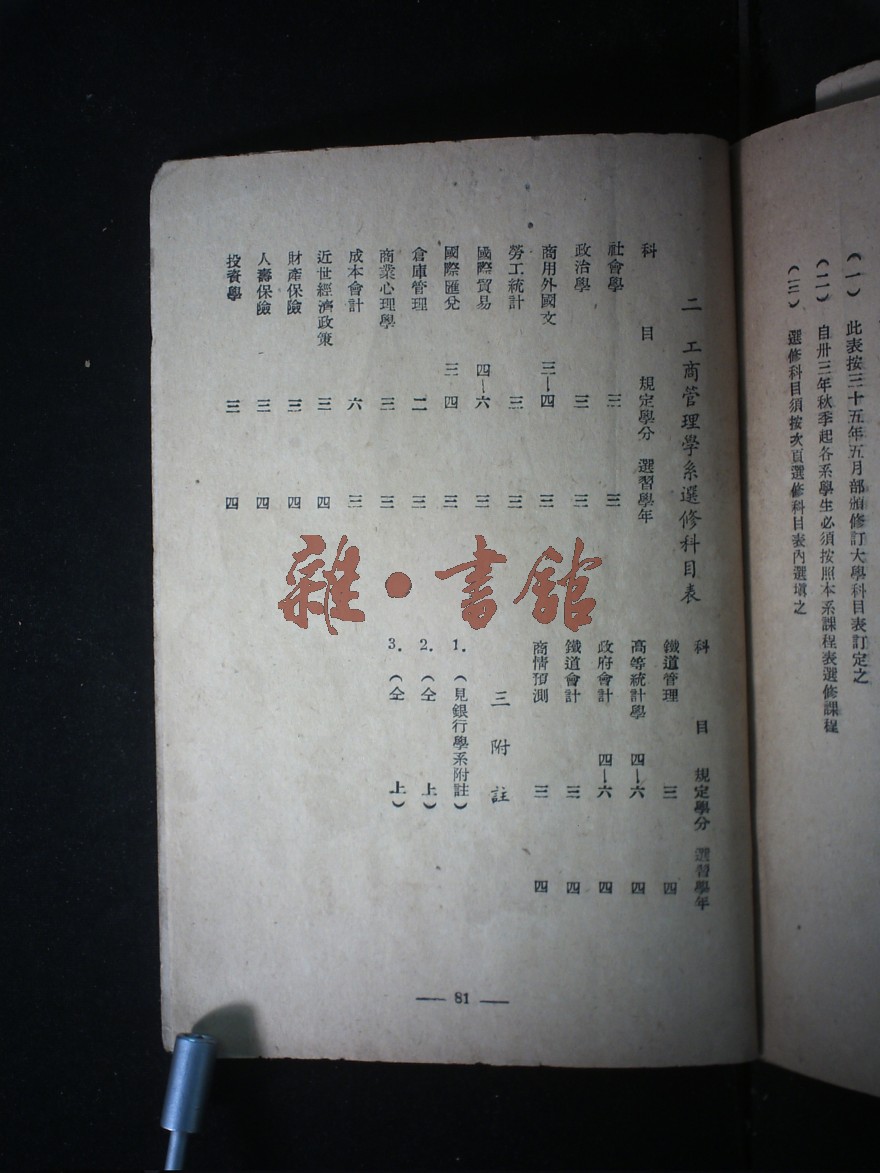 (一) 此表按三十五年五月部頒修訂大學科目表訂定之
(二) 自卅三年秋季起各系學生必須按照本系課程表選修課程
(三) 選修科目須按次頁選修科目表內選塡之
二 工商管理學系選修科目表
科 目 規定學分 選習學年
社會學 三 三
政治學 三 三
商用外國文 三—四 三
勞工統計 三 三
國際貿易 四—六 三
國際匯兌 三 四 三
倉庫管理 二 三
商業心理學 三 三
成本會計 六 三
近世經濟政策 三 四
財產保險 三 四
人壽保險 三 四
投資學 三 四
科 目 規定學分 選習學年
鐵道管理 三 四
高等統計學 四—六 四
政府會計 四—六 四
鐵道會計 三 四
商情預測 三 四
三 附註
1. (見銀行學系附註)
2. (仝 上)
3. (仝 上)
— 81 —
雜·書館